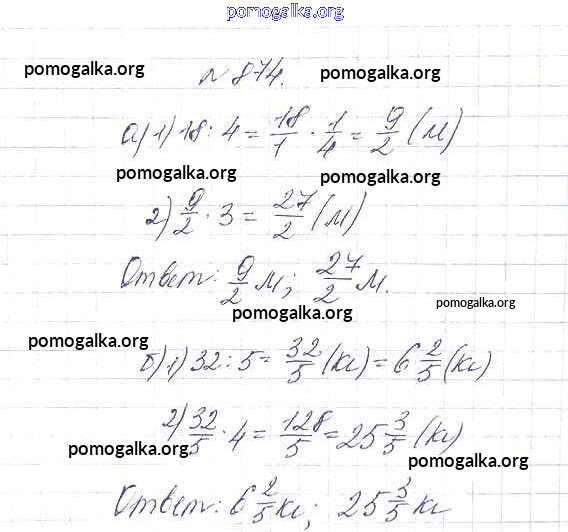 pomogalka.org
pomogalka.org № 874. pomogalka.org
а) 1) 18 : 4 = 18/1 · 1/4 = 9/2 (м)
pomogalka.org pomogalka.org
2) 9/2 · 3 = 27/2 (м)
Ответ: 9/2 м; 27/2 м.
pomogalka.org pomogalka.org
pomogalka.org
б) 1) 32 : 5 = 32/5 (кг) = 6 2/5 (кг)
2) 32/5 · 4 = 128/5 = 25 3/5 (кг)
pomogalka.org pomogalka.org
Ответ: 6 2/5 кг; 25 3/5 кг